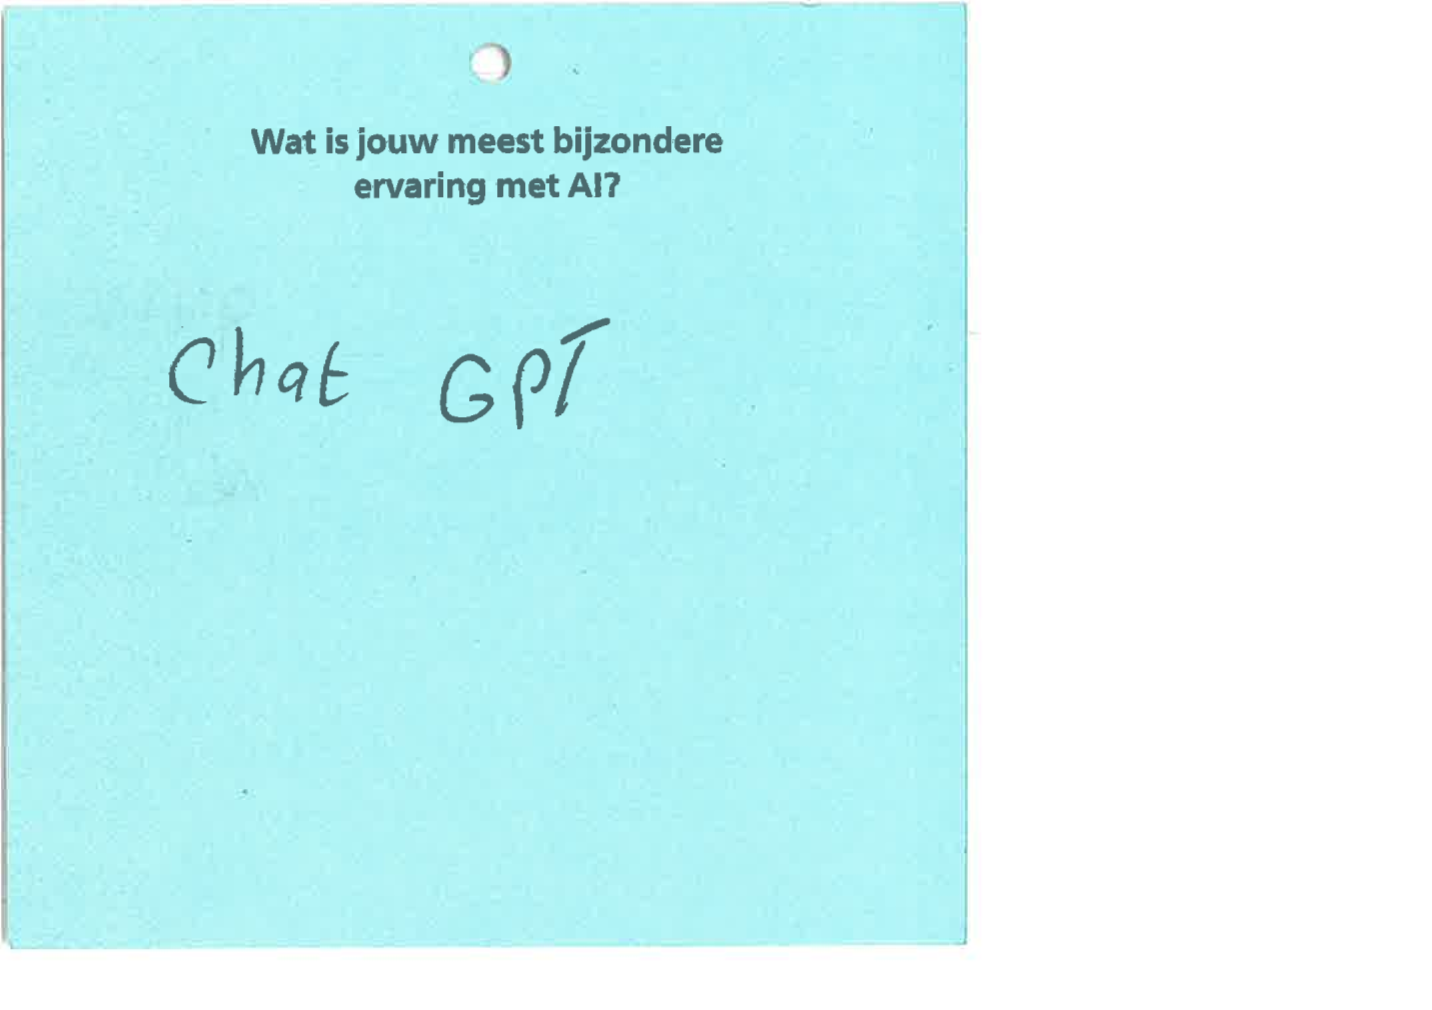 Wat is jouw meest bijzondere
ervaring met AI?
Chat GPT